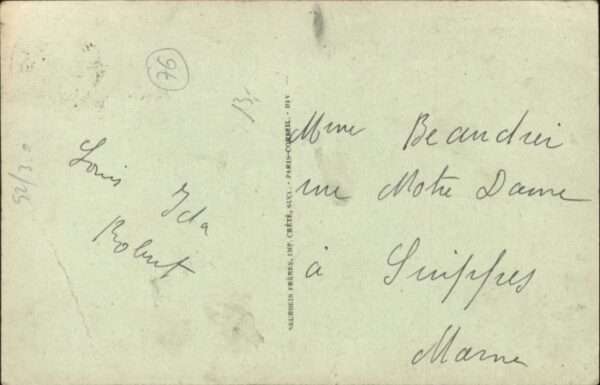 76
13,-
52/3.0
Louis
Ida
Robert
NEURDEIN FRÈRES, IMP. CRÉTÉ, SUCC. - PARIS-CORBEIL. - DIV
Mme Beaudier
rue Notre Dame
à Suippes
Marne